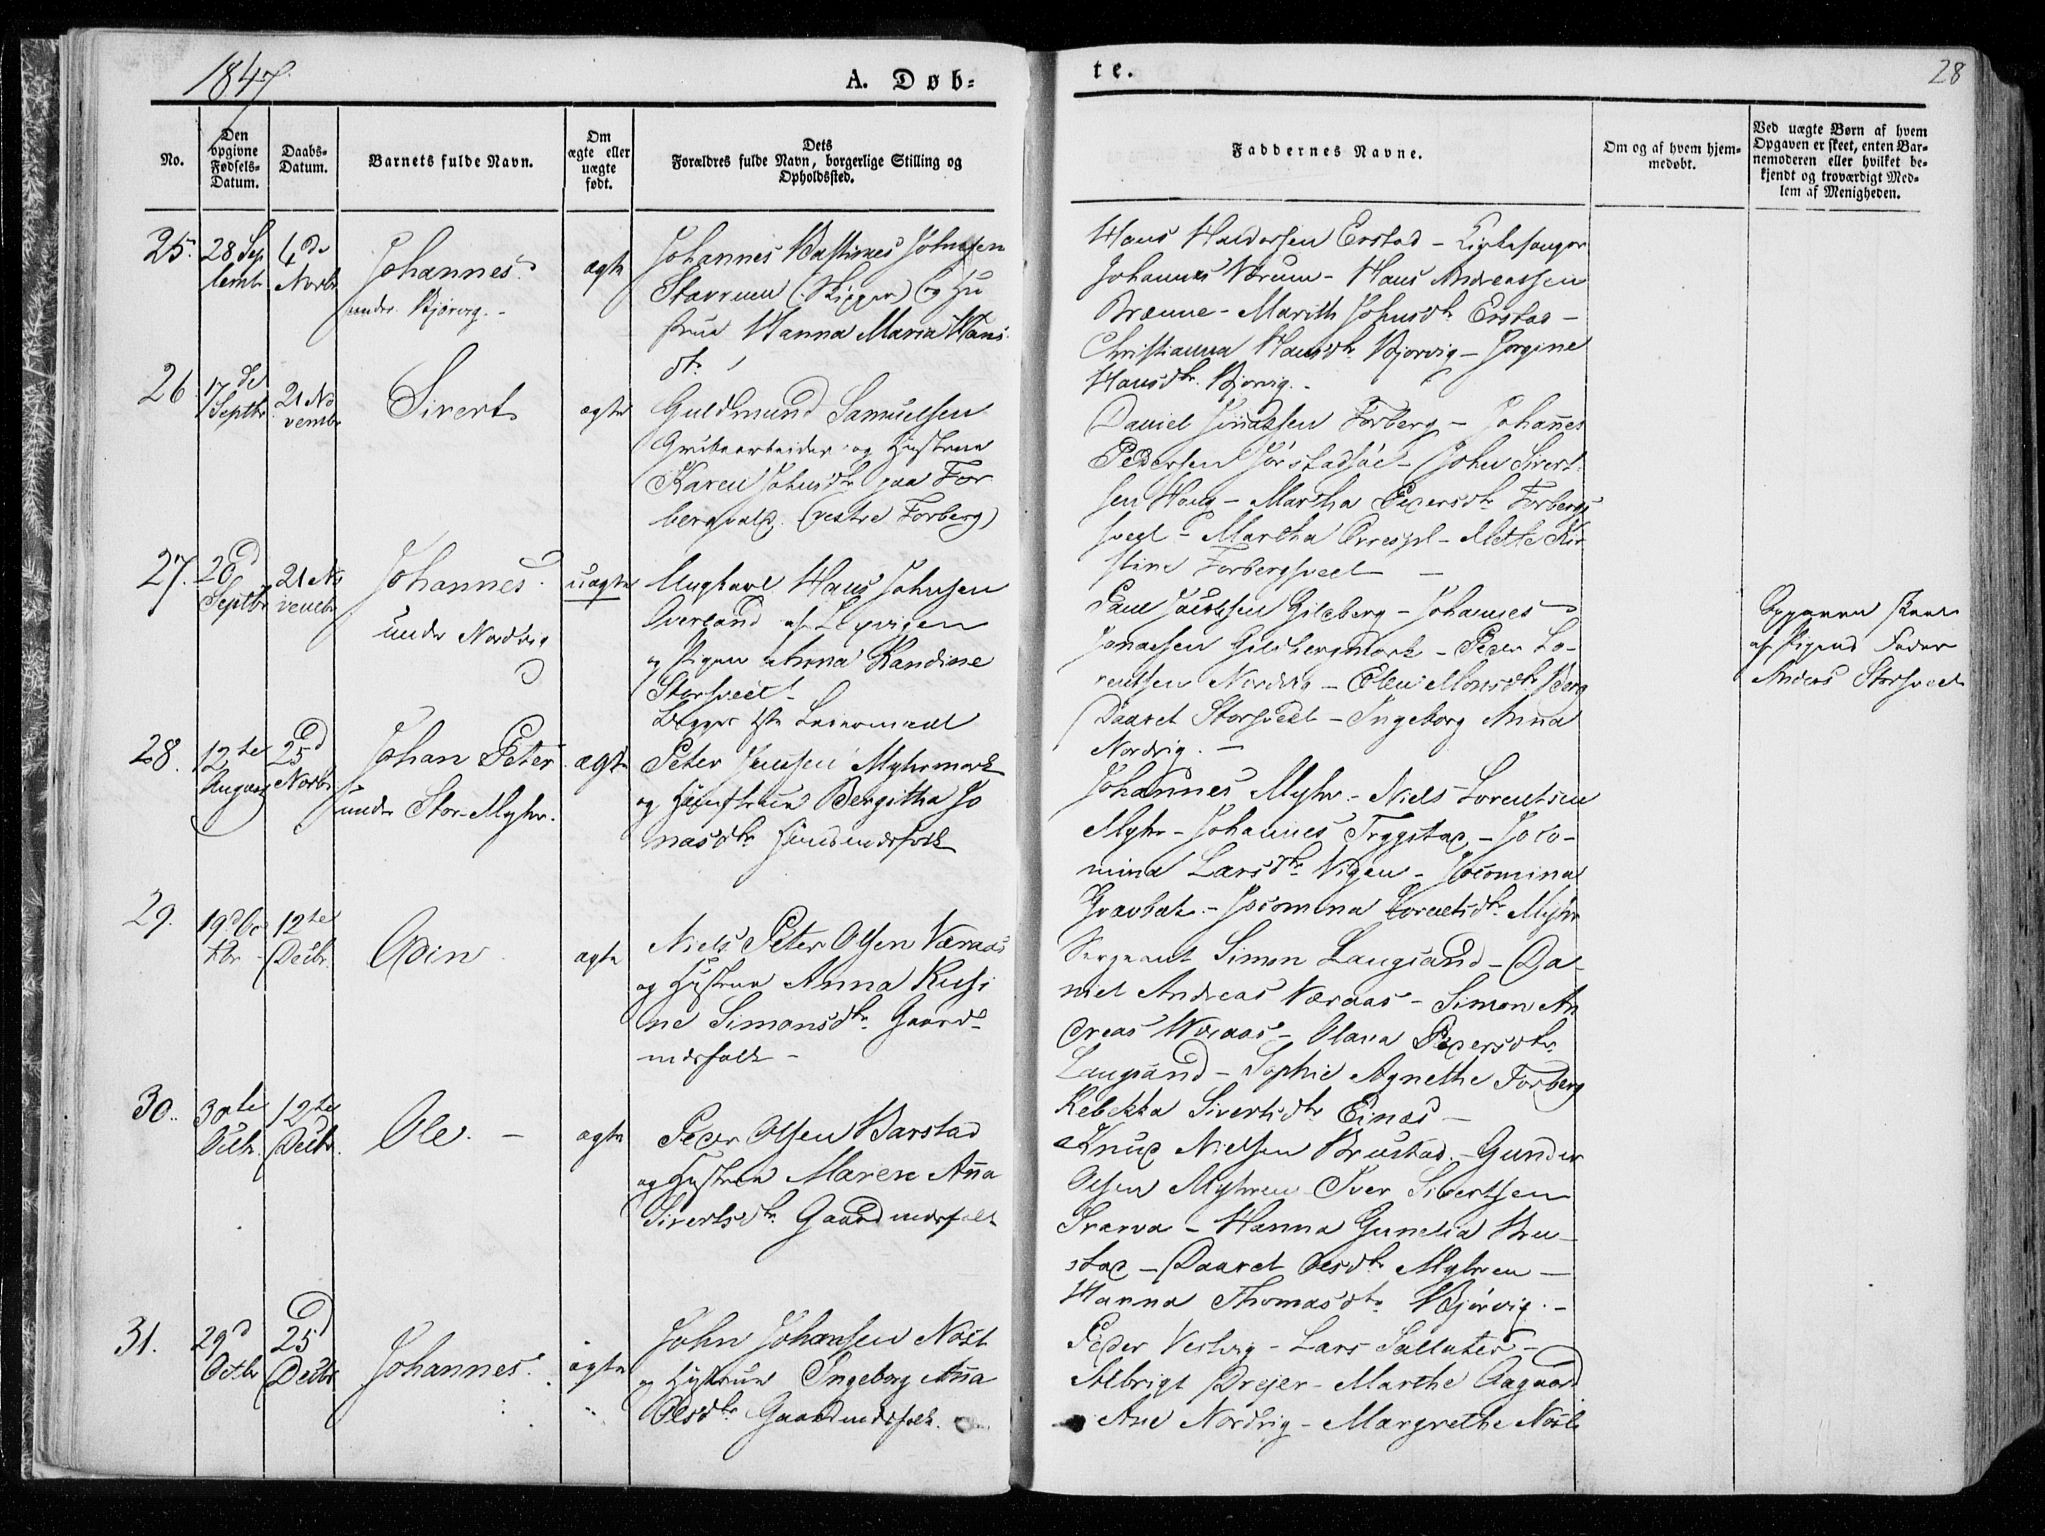 1847.
A. Døb=
te.
28
No.
Den opgivne Fødsels-Datum.
Daabs-Datum.
Barnets fulde Navn.
Om ægte eller uægte født.
Dets Forældres fulde Navn, borgerlige Stilling og Opholdssted.
Faddernes Navne.
Om og af hvem hjem-
medøbt.
Ved uægte Børn af hvem
Opgaven er skeet, enten Bar-
nemoderen eller hvilket be-
kjendt og troværdigt Med-
lem af Menigheden.
25.
28 Sep
tembr
4de
Novbr
Johannes
under Bjørvig.-
ægte
Johannes Johnsen
(Skipper) og Hu
strue Hanna Maria Hans
dtr
Hans Erstad - Kirkesanger
Johannes Værum - Hans Andreassen
Brænne - Marith Johnsdtr Erstad -
Christianna Hansdtr Bjørvig - Jørgine
Hansdtr. Bjørvig. -
26
17de
Septbr
21 No
vembr
Sivert
ægte
Guldmund Samuelsen
Grubearbeider og Hustrue
Karen Johnsdtr paa For
(vestre Forberg)
Daniel Jonassen Forberg - Johannes
Pedersen - John Sivert
sen Haug - Martha Pedersdtr Forbergs
sveet - Martha - Mette Kir
stine Forbergsveet -
27.
20d
Septbr
21 No
vembr
Johannes
under Nordvig
uægte
Ungkarl Hans Johnsen
Overland af
og Pigen Anna Randine
Storsveet
Begges 1ste Leiermaal
Gileberg - Johannes
Jonassen Gilebergmark - Peder Lo-
rentsen Nordvig - Elen Monsdtr Berg
Daaret Storsveet - Ingeborg Anna
Nordvig. -
Opgaven skeet
af Pigens Fader
Anders Storsveet
28.
12te
August
25d
Novbr
Johan Peter
under Stor-Myhr.
ægte
Peter Jensen Myhrmark
og Hustrue Bergitha Jo
nasdtr Huusmdsfolk
Johannes Myhr - Niels Lorentsen
Myhr - Johannes Trygstad - Joco-
mina Larsdtr Vigen - Jocomina
- Jocomina Lorentsdtr Myhr
29.
19d Oc
tbr
12te
Decbr.
Odin
ægte
Niels Peter Olsen Væraas
og Hustrue Anna
ne Simonsdtr. Gaard-
mdsfolk -
Sergeant Simon Langsand - Da-
niel Andreas Væraas - Simon An
dreas Væraas - Olava Pedersdtr.
Langsand - Sophie Agnethe Forberg
Rebekka Sivertsdtr Einas -
30.
30te
Octbr.
12te
Decbr.
Ole. -
ægte
Peder Olsen Barstad
og Hustrue Maren Anna
Sivertsdtr. Gaardmdsfolk
Knud Nielsen Brustad. - Gunder
Olsen Myhren Iver Sivertsen
- Hanna Gunelia Bru-
stad - Daaret Olsdtr Myhren -
Hanna Thomasdtr Bjørvig. -
31.
29d
Octbr
25d
Decbr
Johannes.
ægte
John Johansen Nøst
og Hustrue Ingeborg Anna
Olsdtr Gaardmdsfolk.
Peder Vestvig - Lars -
Albrigt Drejer - Marthe Aagaard
Ane Nordvig - Margrethe Nøst